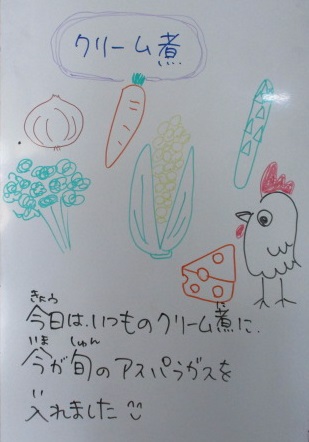 クリーム煮
きょう
今日は、いつものクリーム煮に、
に
いま しゅん
今が旬のアスパラガスを
い
入れました